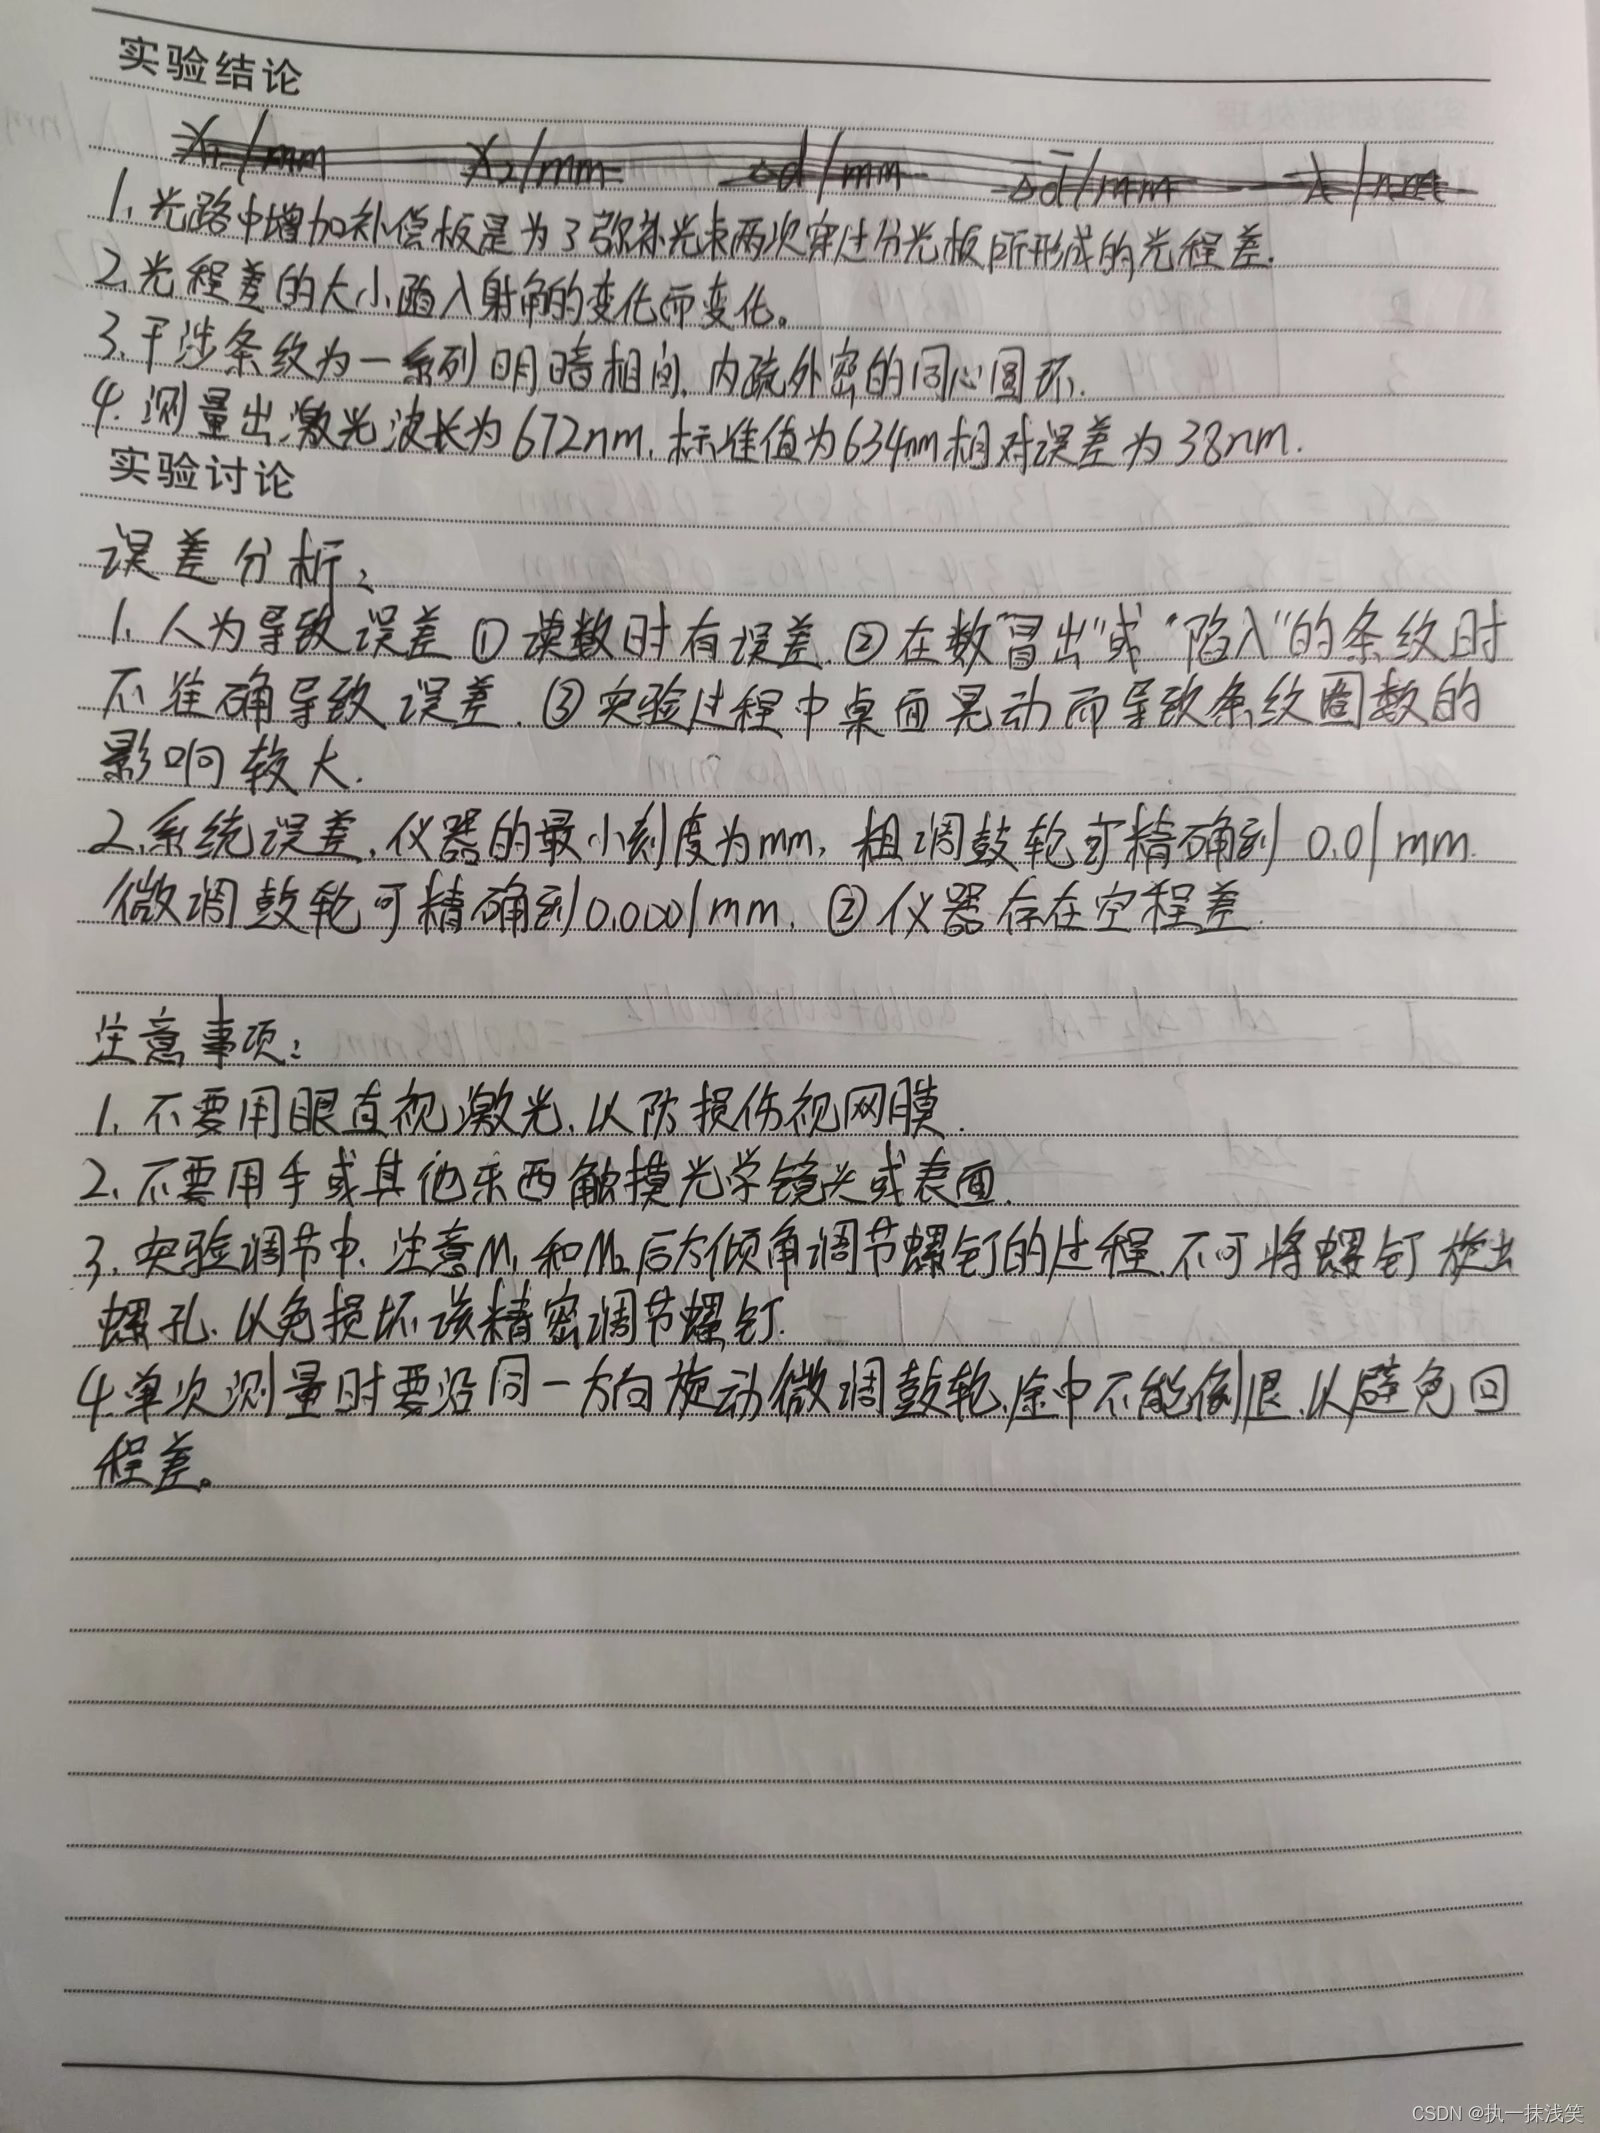 实验结论
X₁/mm X₂/mm △d/mm △d̄/mm λ/nm
1、光路中增加补偿板是为了弥补光束两次穿过分光板所形成的光程差.
2、光程差的大小随入射角的变化而变化。
3、干涉条纹为一系列明暗相间,内疏外密的同心圆环.
4、测量出激光波长为672nm,标准值为634nm相对误差为38nm.
实验讨论
误差分析:
1、人为导致误差 ①读数时有误差.②在数"冒出"或"陷入"的条纹时
不准确导致误差.③实验过程中桌面晃动而导致条纹圈数的
影响较大.
2、系统误差,仪器的最小刻度为mm,粗调鼓轮可精确到0.01mm.
微调鼓轮可精确到0.0001mm.②仪器存在空程差.
注意事项:
1、不要用眼直视激光,以防损伤视网膜.
2、不要用手或其他东西触摸光学镜头或表面.
3、实验调节中,注意M₁和M₂后方倾角调节螺钉的过程,不可将螺钉旋出
螺孔,以免损坏该精密调节螺钉.
4.单次测量时要沿同一方向旋动微调鼓轮,途中不能倒退,以避免回
程差。
CSDN @执一抹浅笑